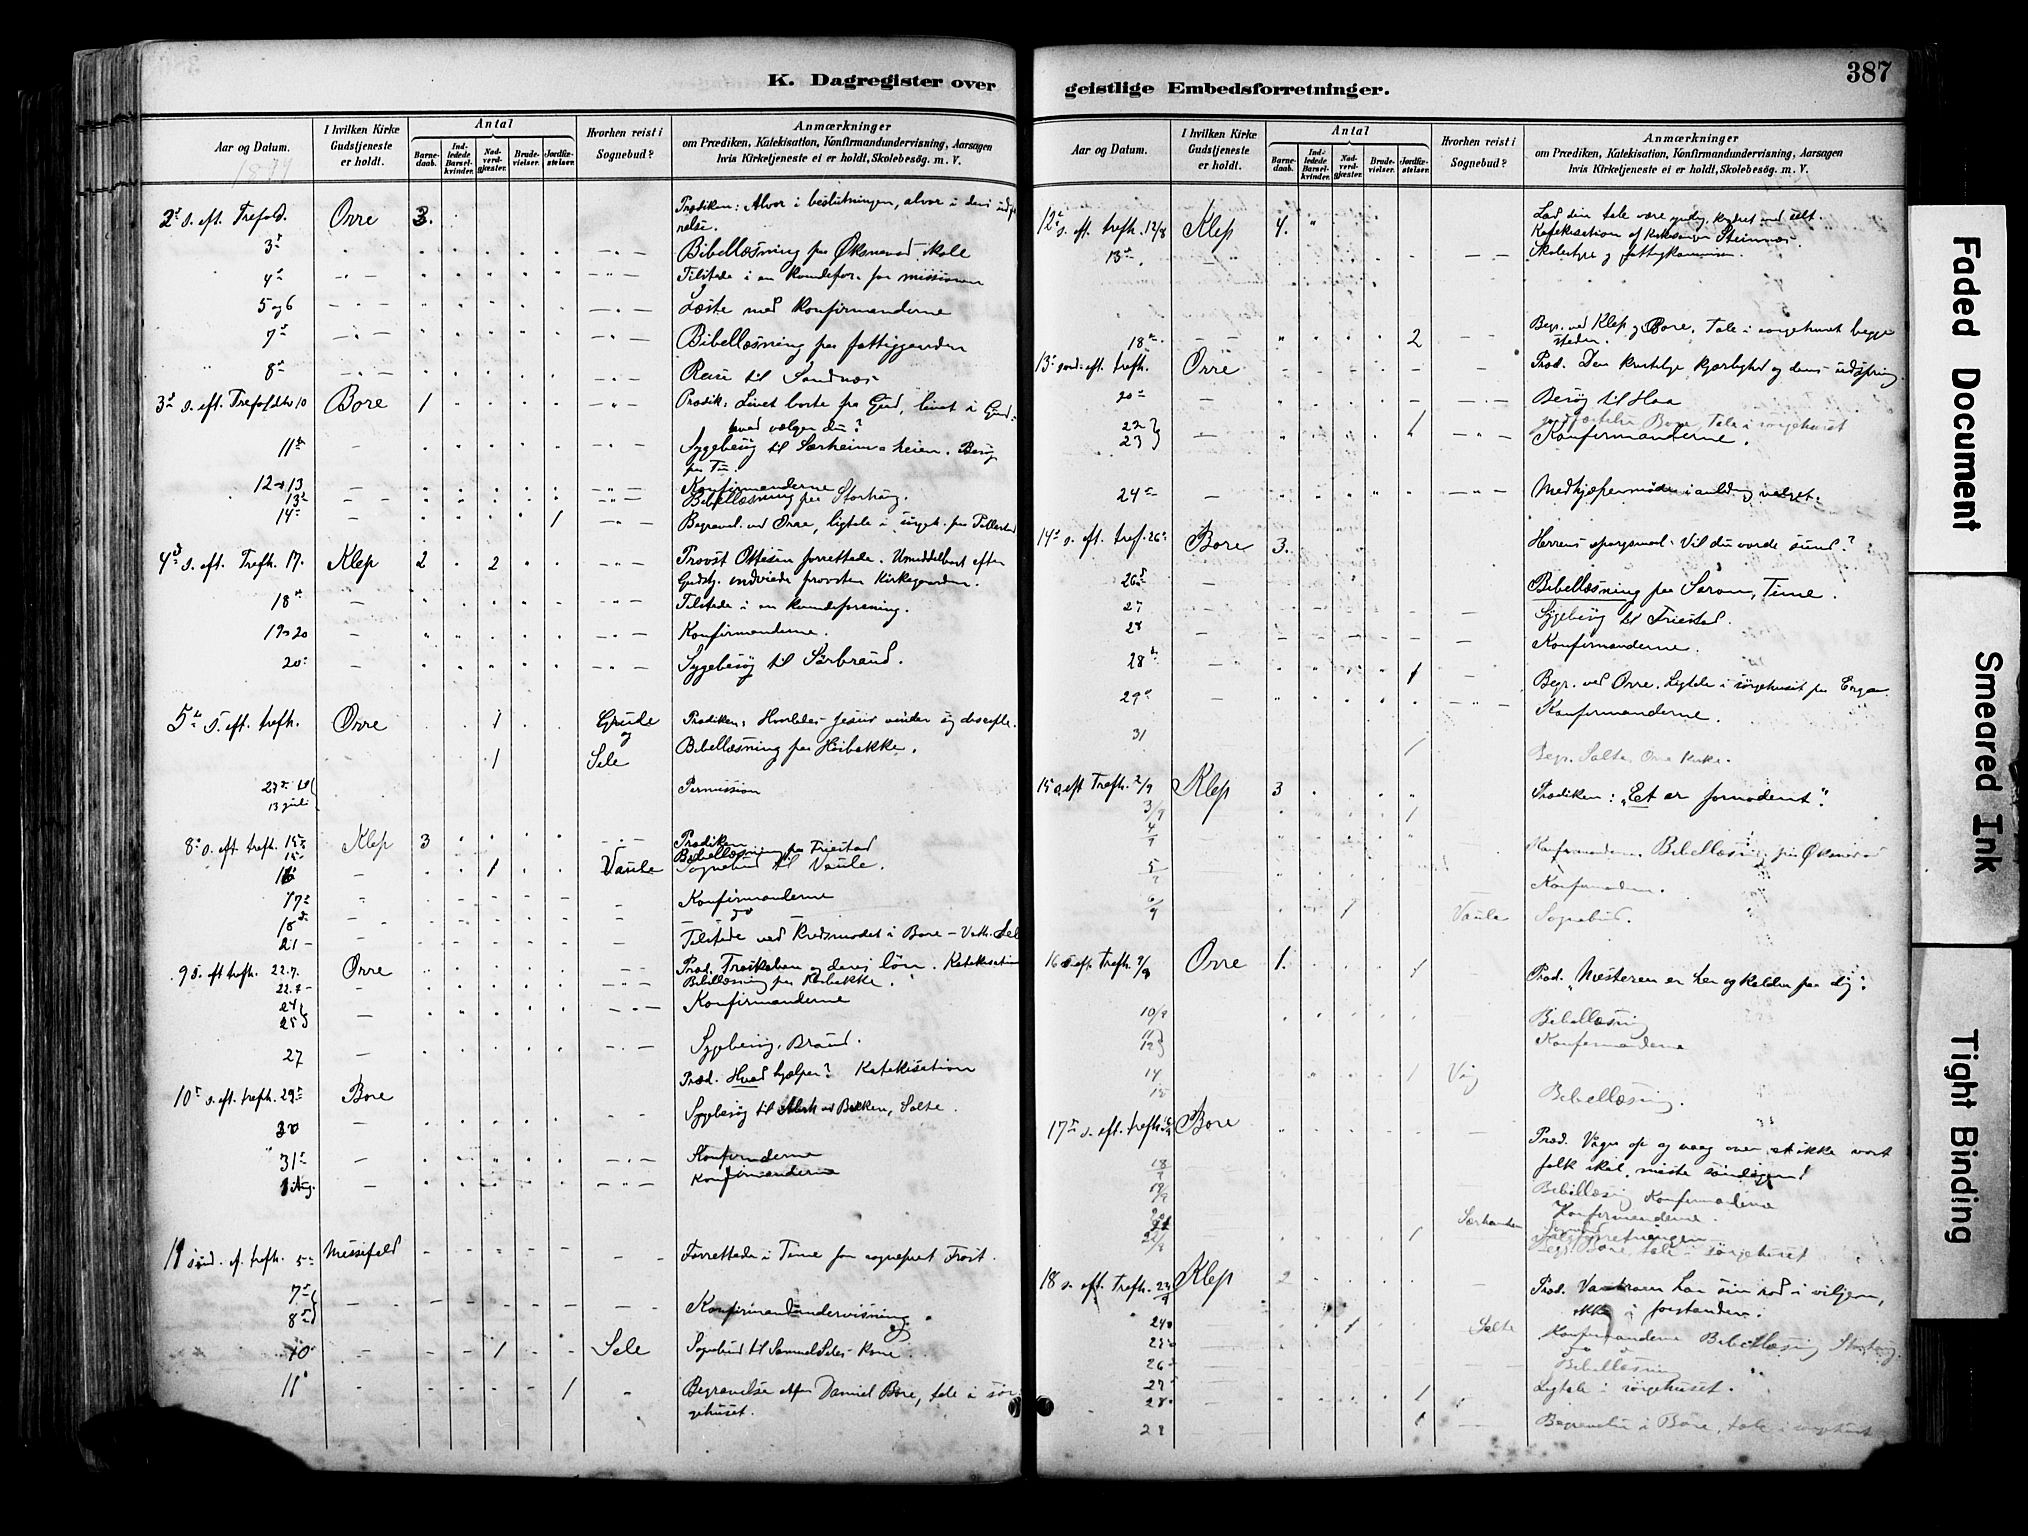 K. Dagregister over
Aar og Datum.
I hvilken Kirke Gudstjeneste er holdt.
Antal
Barne-daab.
Ind-ledede Barsel-kvinder.
Nad-verd-gjæster.
Brude-vielser.
Jordfæ-stelser.
Hvorhen reist i Sognebud?
Anmærkninger
om Prædiken, Katekisation, Konfirmandundervisning, Aarsagen
hvis Kirketjeneste ei er holdt, Skolebesøg. m. V.
2den s. eft. Trefold. Orre 3. Prædiken: Alvor i beslutningen, alvor i dens udfø
relse.
3 Bibellæsning paa Øksnevad skole
4 Tilstede i en kvindefor. for missionen
5 og 6 Læste med konfirmanderne
7 Bibellæsning paa fattiggaarden
8 Reise til Sandnæs
3 s. eft. Trefoldh 10 Bore 1 Prædik: Livet borte fra Gud, livet i Gud:
hvad vælger du?
11 Sygebesøg til Særheim
12 13 Konfirmanderne
13 Bibellæsning paa Storhaug.
14 1 Begravel. ved Orre, ligtale i
4 s. eft. Trefh. 17. Klep 2 2 Provst Ottesen forrettede. Umiddelbart efter
Gudstj. indviede provsten kirkegaarden.
18 Tilstede i en kvindeforening.
19 20 Konfirmanderne.
20 Sygebesøg til Sørbraud.
5 s. eft. trefh. Orre 1 Grude Prædiken: Hvorledes Jesus vinder sig disciple.
og
1 Sele Bibellæsning paa Høibakke.
13 juli Permission
8 s. eft. trefh. 15 Klep 3 Prædiken
15 Bibellæsning paa Friestad
16 1 Vaule Sognebud til Vaule.
17 Konfirmanderne
18 do
21 Tilstede ved kredsmødet i Bore
9 s. eft trefh. 22.7. Orre Præd. og deres løn. Katekisation
22.7 Bibellæsning paa Høibakke.
24
25 Konfirmanderne
27 Sygebesøg. Braud.
10 s. eft. trefh. 29 Bore Præd. Hvad hjælper? Katekisation
30 Sygebesøg til Bakken, Salte.
31 Konfirmanderne
1 Aug. Konfirmanderne
11 sønd. ef. trefh. 5 Messefald Forrettede i Time for sognepræst Frost.
7
8 Konfirmandundervisning
10 1 Sele Sognebud til Samuel Seles kone.
11 1 Begravelse efter Daniel Bore, tale i sør
gehuset.
387
geistlige Embedsforretninger.
Aar og Datum.
I hvilken Kirke Gudstjeneste er holdt.
Antal
Barne-daab.
Ind-ledede Barsel-kvinder.
Nad-verd-gjæster.
Brude-vielser.
Jordfæ-stelser.
Hvorhen reist i Sognebud?
Anmærkninger
om Prædiken, Katekisation, Konfirmandundervisning, Aarsagen
hvis Kirketjeneste ei er holdt, Skolebesøg. m. V.
12 s. eft. trefh. 12/8 Klep 4. Lad din tale være yndig, krydret med salt.
Katekisation af kirkesanger Steinnæs.
13 Skolestyre og fattigkommission.
18 2 Begr. ved Klep og Bore. Tale i sørgehuset begge
steder.
13 sønd. eft. trefh. Orre Præd. Den kristelige kjærlighed og dens udøving
20 Besøg til Haa
22 1 Bore, Tale i sørgehuset
23 Konfirmanderne.
24 Medhjælpermøde
14 s. eft. tref. 26 Bore 3. Herrens spørgsmaal: Vil du vorde sund?
26 Bibellæsning paa Saron, Time.
27 Sygebesøg til Friestad.
28 Konfirmanderne.
28 1 Begr. ved Orre. Ligtale i sørgehuset paa Erga.
29 Konfirmanderne.
31 1 Begr. Salte, Orre kirke.
15 s eft Trefh. 2/9 Klep 3 Prædiken: "Et er fornødent".
3/9 1
4/9 Konfirmanderne. Bibellæsning paa Øksnevad
5/9 Konfirmanderne.
6/9 1 Vaule Sognebud.
16 s. eft. Trefh. 9/9 Orre 1. 1 Præd. "Mesteren er her og kalder paa dig".
10/9 Bibellæsning
11
12 Konfirmanderne
14 1
15 Bibellæsning.
17 s. eft. trefh. 16/9 Bore Præd. Vaagn op og vaag over at ikke vort
folk skal miste søndagen!
18/9 Bibellæsning Konfirmanderne
19/9 Konfirmanderne.
20
21 Sognebud
22/9 1 Begr. Bore, tale i sørgehuset
18 s. eft. Trefh. 23/9 Klep 2 Præd. Vantroen har sin rod i viljen,
ikke i forstanden.
24 1 Salte Konfirmanderne Bibellæsning Storhaug
25 do
26 Bibellæsning
27 1 Ligtale i sørgehuset.
28
28 1 Begravelse i Bore, tale i sørgehuset
Faded Document
Smeared Ink
Tight Binding